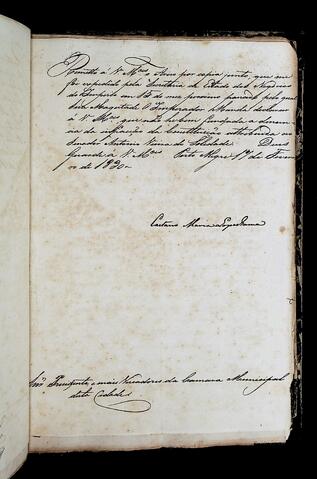 Remetto á V. Mces o Aviso por copia junto, que me
foi expedido pela Secretaria de Estado dos Negocios
do Imperio em do mez proximo passado, po que
Sua Magestade O Imperador Manda declarar
á V. Mces que não he bem fundada a denun
cia de infracção da Constituição attribuida ao
Senador Antonio Vieira da Soledade. Deos
Guarde á V. Mces Porto Alegre 17 de
ro de 1830.
Caetano Maria Lopes Gama
Snres Presidente, e mais Vereadores da Camara Municipal
desta Cidade